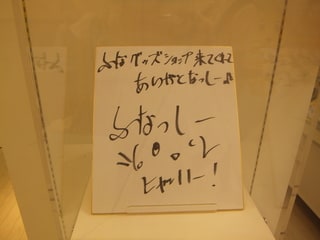 ふなグッズショップ来てくれて
ありがとなっしー♪
ふなっしー
ヒャッハー!